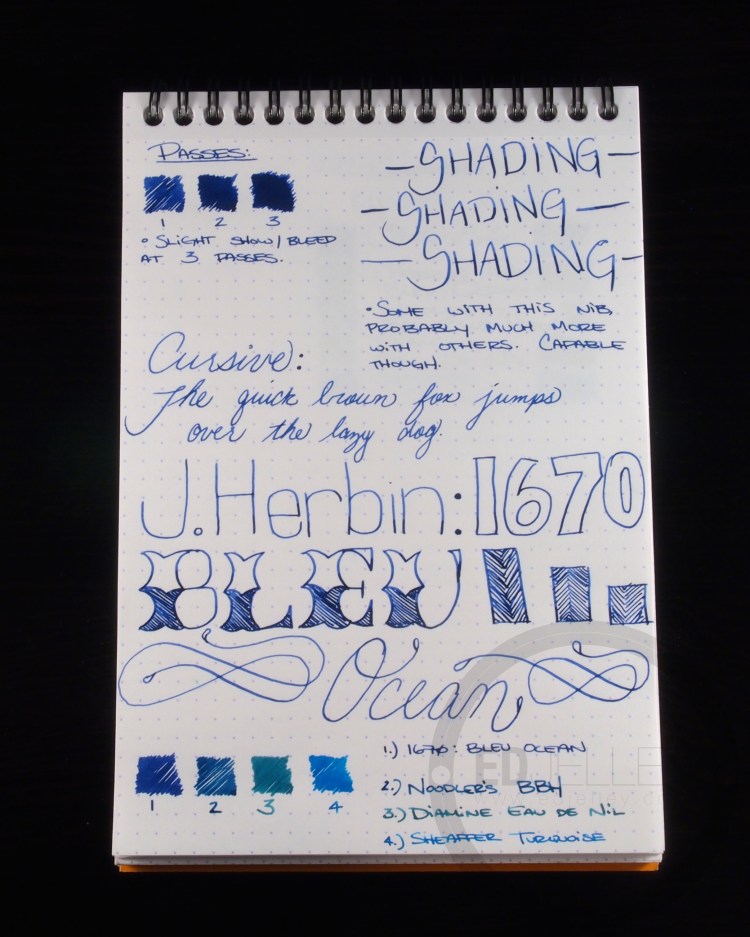 PASSES:
1 2 3
• SLIGHT SHOW/BLEED
AT 3 PASSES.
—SHADING—
—SHADING—
—SHADING—
•SOME WITH THIS NIB,
PROBABLY MUCH MORE
WITH OTHERS. CAPABLE
THOUGH.
Cursive:
The quick brown fox jumps
over the lazy dog.
J.Herbin:1670
BLEU
Ocean
1 2 3 4
1.) 1670: BLEU OCEAN
2.) NOODLER'S BBH
3.) DIAMINE EAU DE NIL
4.) SHEAFFER TURQUOISE